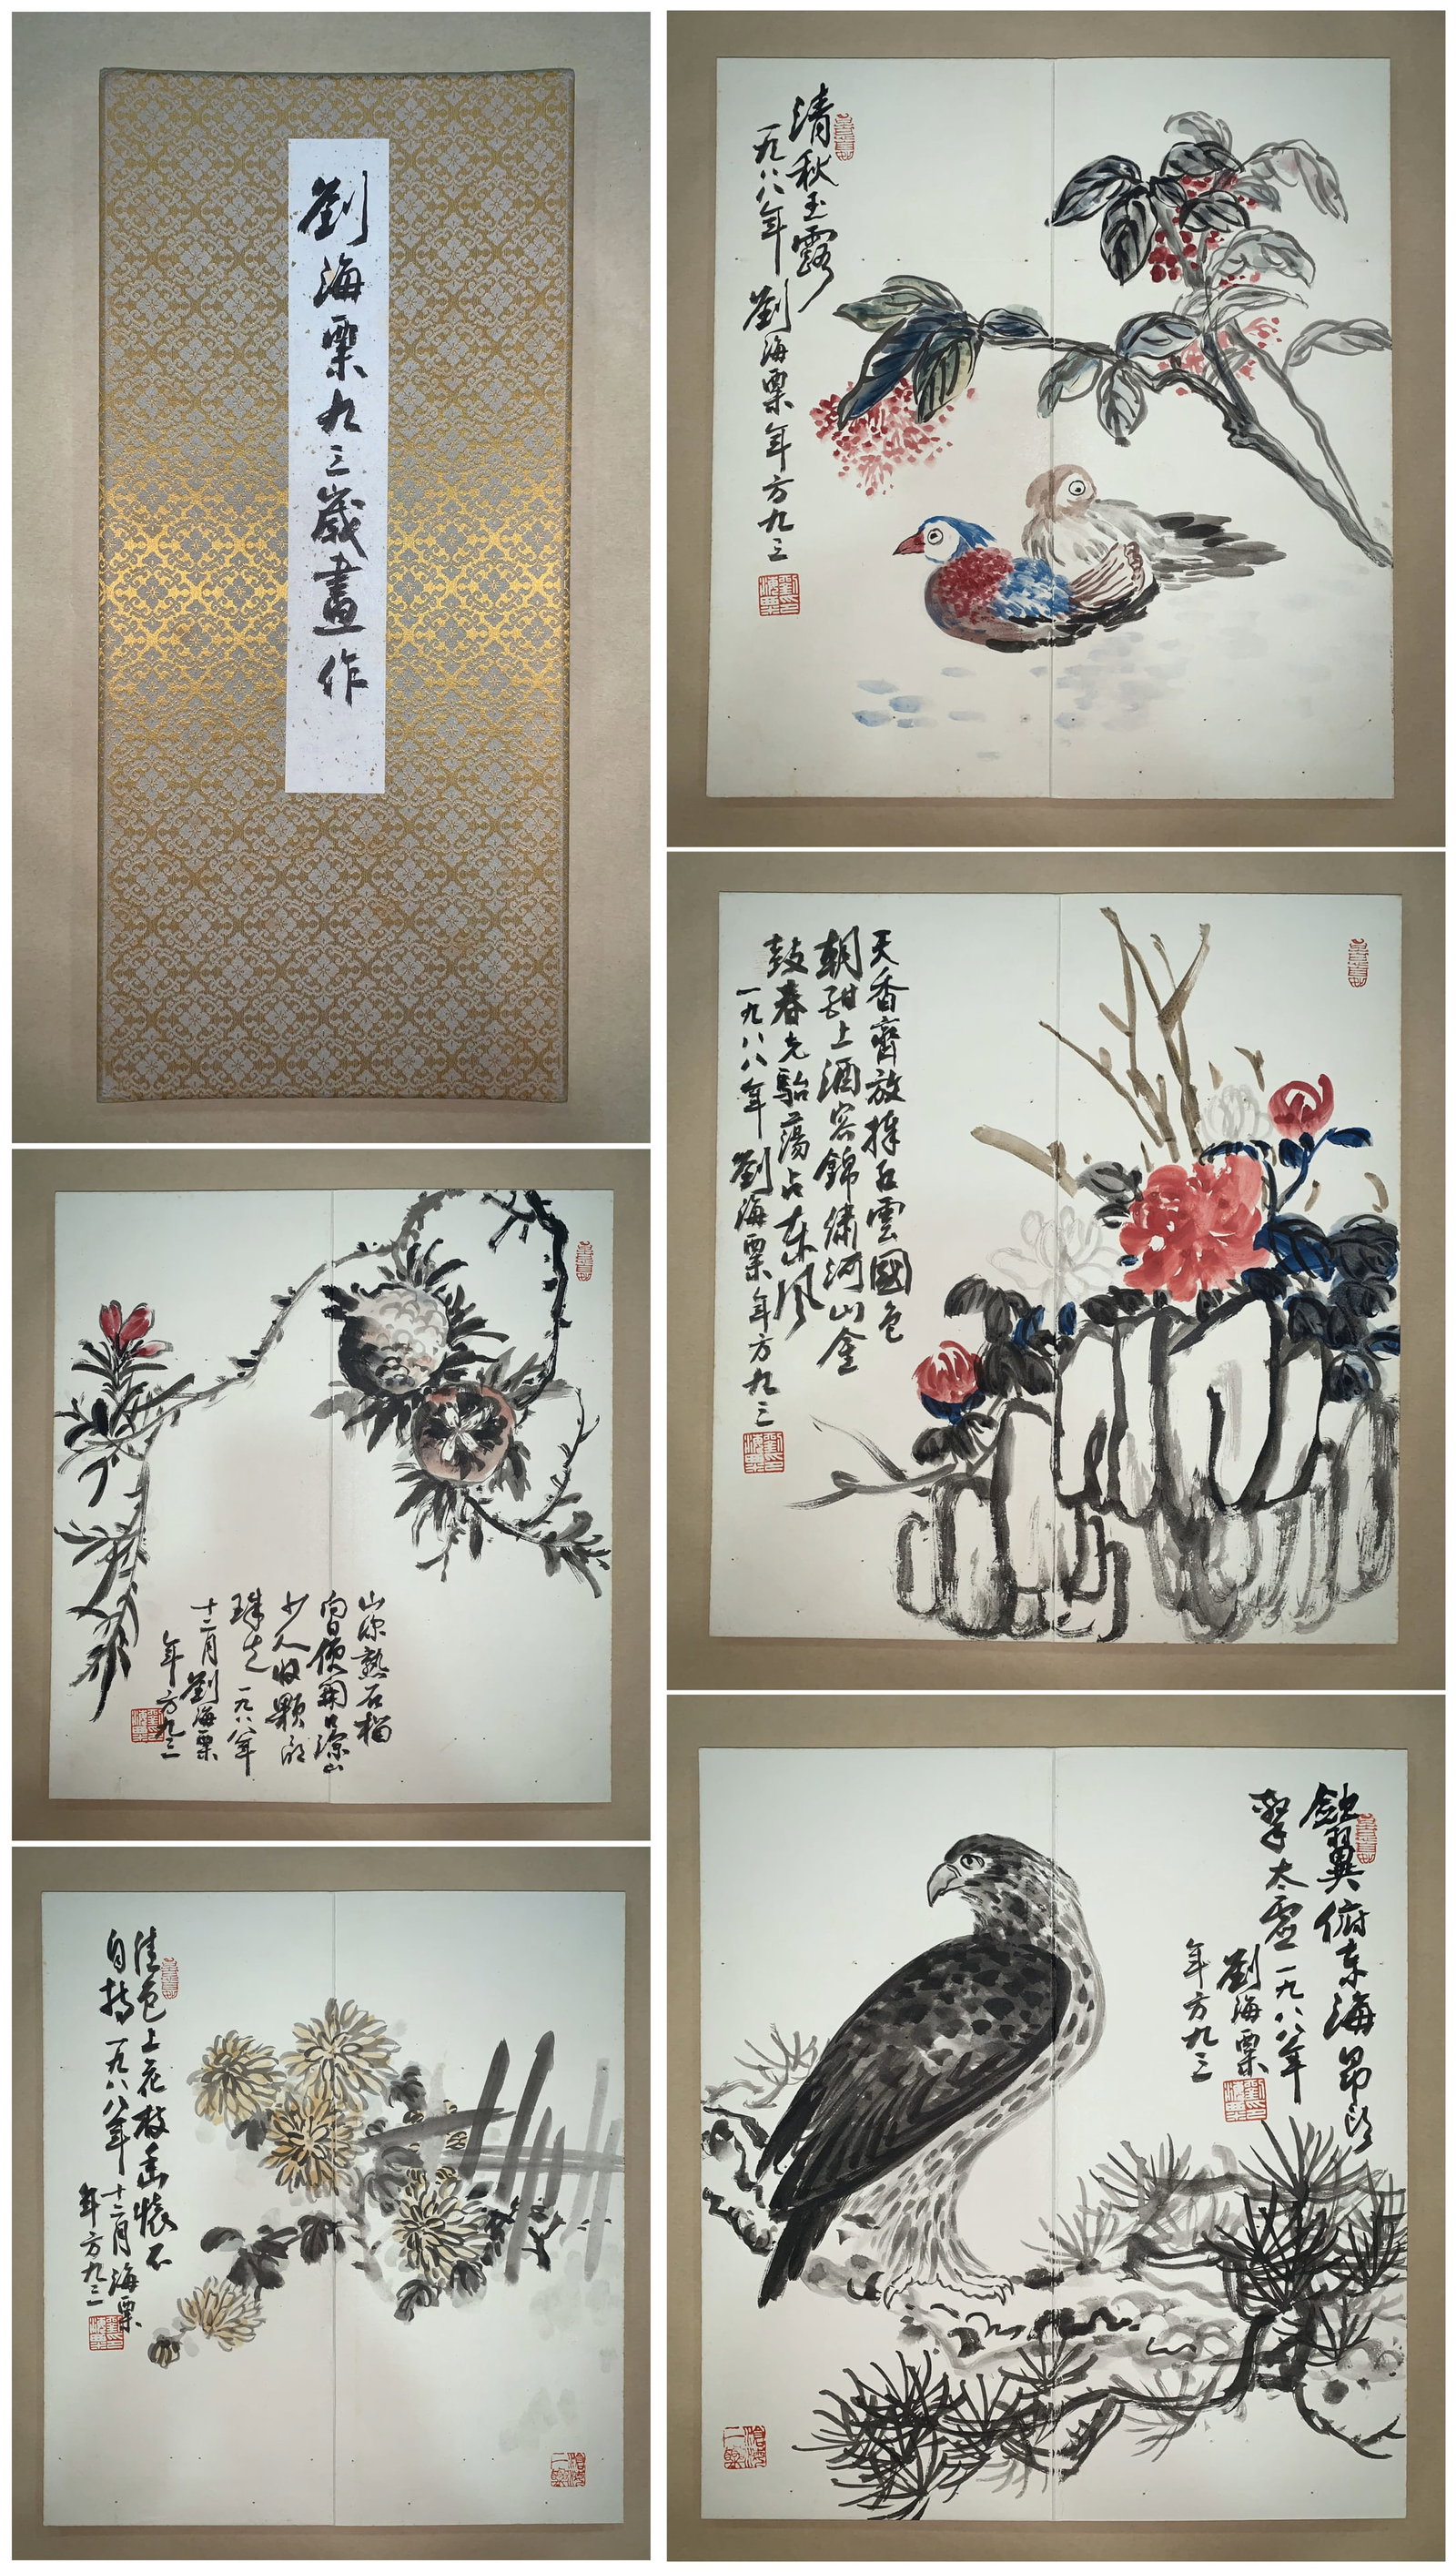 劉海粟九三歲畫作
清秋玉露
一九八八年 劉海粟年方九三
劉海粟印
天香齊放擁紅雲國色
朝酣上酒容錦繡河山金
鼓春光駘蕩占東風
一九八八年 劉海粟年方九三
劉海粟印
山深熟石榴
向日便開口深山
少人收顆顆
珠光 一九八八年
十二月劉海粟
年方九三
佳色上花枝幽懷不
自持 一九八八年十二月海粟
年方九三
斂翼俯東海昂頭
擊太虛一九八八年
劉海粟
年方九三